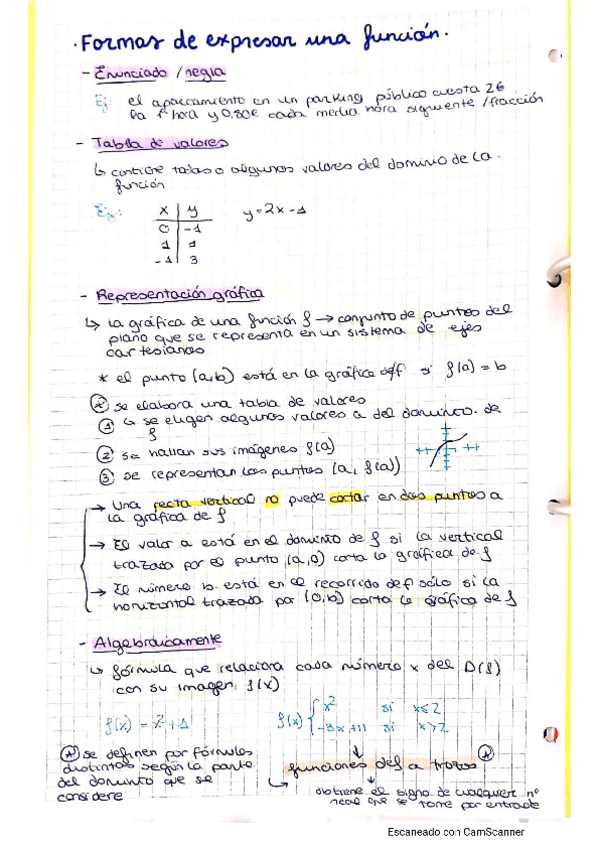 · Formas de expresar una función ·
- Enunciado / regla
Ej: el aparcamiento en un parking público cuesta 2€
la 1ª hora y 0.80€ cada media hora siguiente /fracción
- Tabla de valores
↳ contiene todas o algunos valores del dominio de la
función
Ej: x | y y = 2x - 1
0 | -1
1 | 1
-1 | 3
- Representación gráfica
↳ la gráfica de una función f → conjunto de puntos del
plano que se representa en un sistema de ejes
cartesianos
* el punto (a,b) está en la gráfica de f si f(a) = b
* se elabora una tabla de valores
① ↳ se eligen algunos valores a del dominio de
f
② se hallan sus imágenes f(a)
③ se representan los puntos (a, f(a))
→ Una recta vertical no puede cortar en dos puntos a
la gráfica de f
→ El valor a está en el dominio de f si la vertical
trazada por el punto (a,0) corta la gráfica de f
→ El número b está en el recorrido de f sólo si la
horizontal trazada por (0,b) corta la gráfica de f
- Algebráicamente
↳ fórmula que relaciona cada número x del D(f)
con su imagen f(x)
f(x) = x² + 1 f(x) { x² si x ≤ 2
-3x + 11 si x > 2
* se definen por fórmulas
distintas según la parte
del dominio que se
considere
funciones def a trozos *
↳ obtiene el signo de cualquier nº
real que se tome por entrada
Escaneado con CamScanner